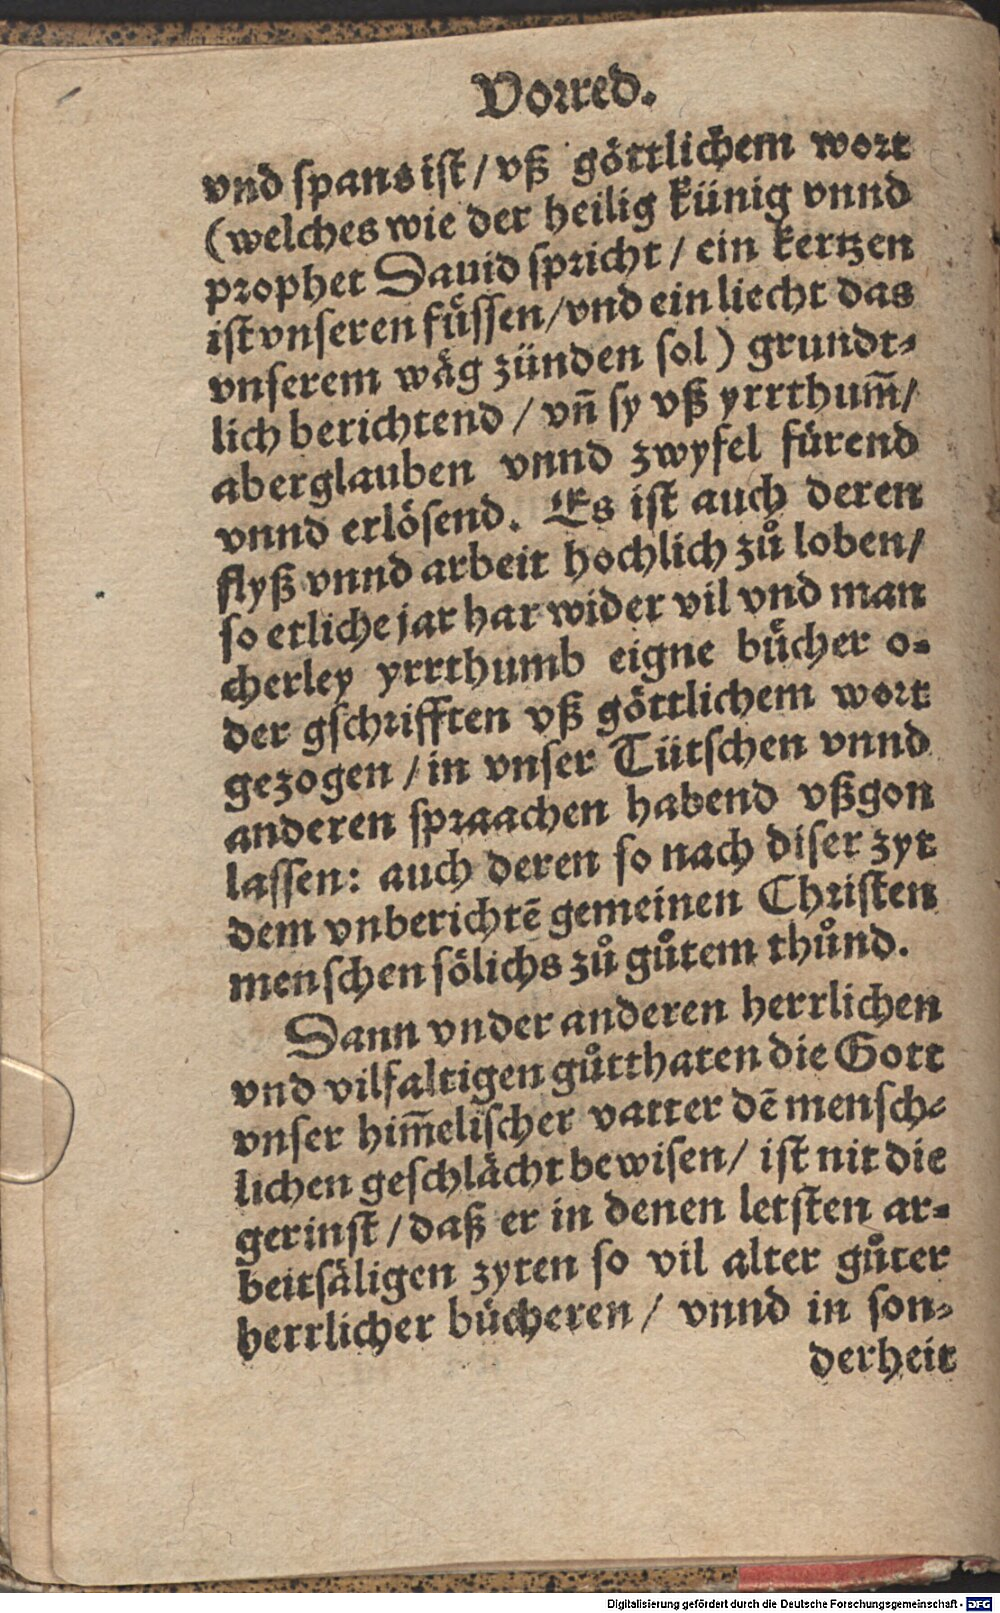 Vorred.
vnd spans ist / vß göttlichem wort
(welches wie der heilig künig vnnd
prophet Dauid spricht / ein kertzen
ist vnseren fuͤssen / vnd ein liecht das
vnserem wäg zünden sol) grundt-
lich berichtend / vn̄ sy vß yrrthum̄ /
aberglauben vnnd zwyfel fürend
vnnd erlösend. Es ist auch deren
flyß vnnd arbeit hochlich zů loben /
so etliche jar har wider vil vnd man
cherley yrrthumb eigne buͤcher o-
der gschrifften vß göttlichem wort
gezogen / in vnser Tütschen vnnd
anderen spraachen habend vßgon
lassen: auch deren so nach diser zyt
dem vnberichtē gemeinen Christen
menschen sölichs zů gůtem thůnd.
Dann vnder anderen herrlichen
vnd vilfaltigen gůtthaten die Gott
vnser him̄elischer vatter dē mensch-
lichen geschlächt bewisen / ist nit die
gerinst / daß er in denen letsten ar-
beitsäligen zyten so vil alter gůter
herrlicher buͤcheren / vnnd in son-
derheit
Digitalisierung gefördert durch die Deutsche Forschungsgemeinschaft - DFG